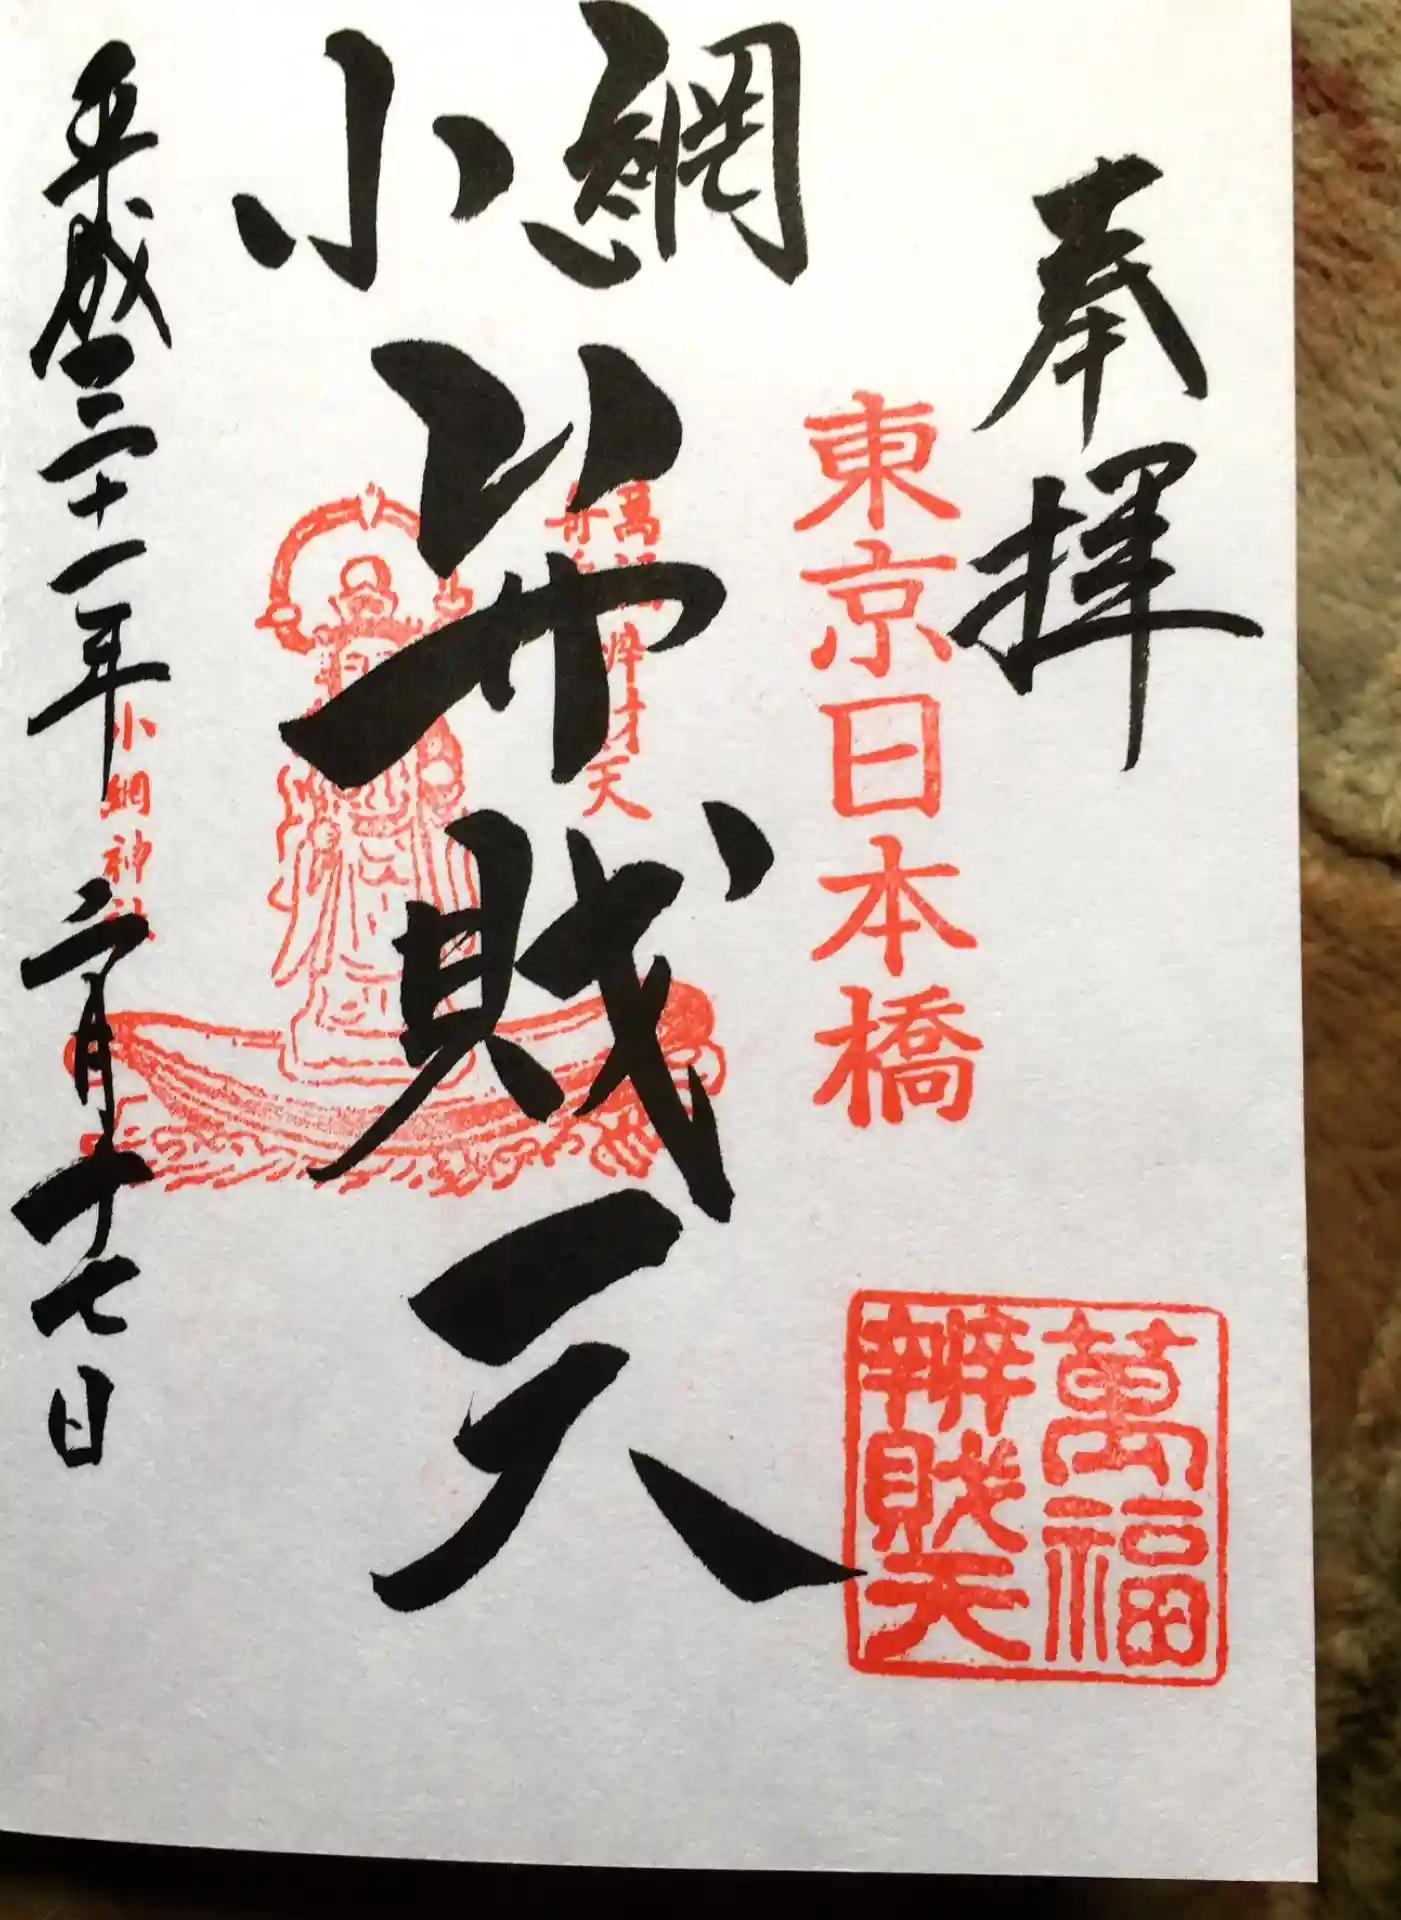 奉拝
東京日本橋
萬福
辨財天
小網
弁財天
小網神社
平成三十一年二月十七日